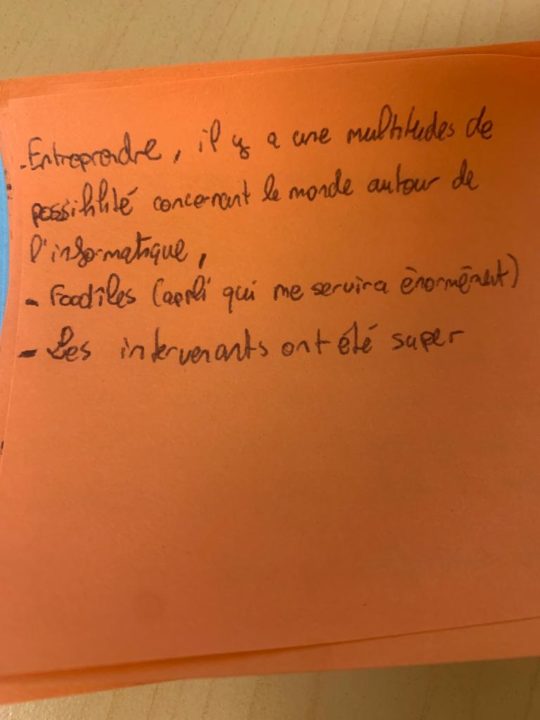 - Entreprendre, il y a une multitudes de
possibilité concernant le monde autour de
l'informatique,
- Foodiles (appli qui me servira énormément)
- Les intervenants ont été super